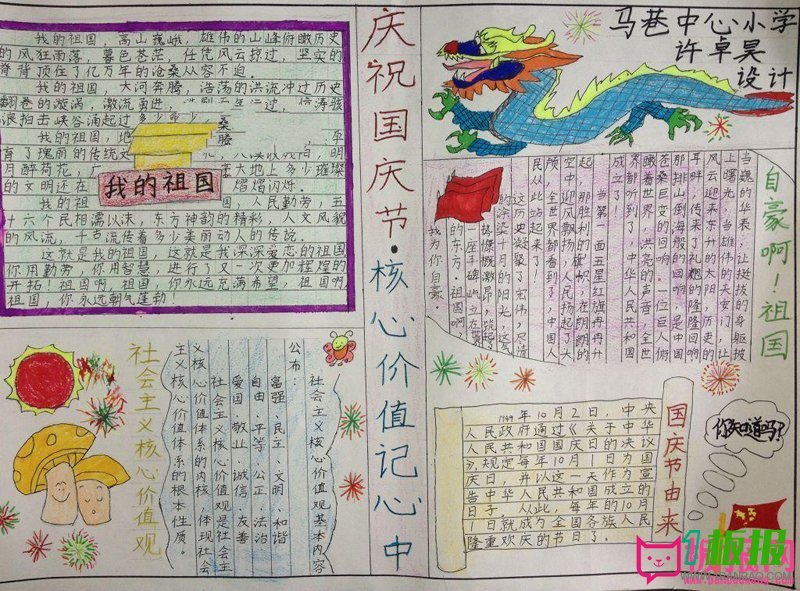 我的祖国，高山巍峨，雄伟的山峰俯瞰历史
的风狂雨落，暮色苍茫，任凭风云掠过，坚实的
脊背顶住了亿万年的沧桑从容不迫
我的祖国 大河奔腾，浩荡的洪流冲过历史
翻卷的漩涡，激流勇进，
浪拍击峡谷涌起过多少
我的祖国
育了瑰丽的传统文
月照荷花，
的文明还在 熠熠闪烁。
我的祖国
我的祖 国，人民勤劳，五
十六个民相濡以沫，东方神韵的精彩，人文风貌
的风流，千古流传着多少美丽动人的传说。
这就是我的祖国，这就是我深深爱恋的祖国
你用勤劳，你用智慧，进行了又一次更加辉煌的
开拓！祖国啊，祖国，你永远充满希望，祖国啊
祖国，你永远朝气蓬勃！
庆祝国庆节·核心价值记心中
马巷中心小学
许卓昊
设计
自豪啊！祖国
当巍的华表，让挺拔的身躯披
上曙光，当雄伟的天安门，让
风云迎来东升的太阳，历史的
耳畔，传来了礼炮的隆隆回响
那排山倒海般的回响，是中国
苍桑巨变的回响。一位巨人俯
瞰着世界，洪亮的声音，全世
界都听到了，中华人民共和国
成立了
当第一面五星红旗冉冉升
起，那胜利的旗帜，在朗朗的
空中迎风飘扬，人民扬起了大
颅，全世界都看到了，中国人
民从此站起来了！
这历史凝聚了宏伟，尽情
的涂染十月的阳光，
的东方。祖国啊
我为你自豪。
社会主义核心价值观
社会主义核心价值观基本内容
公布：
富强、民主、文明、和谐
自由、平等、公正、法治
爱国、敬业、诚信、友善
社会主义核心价值观是社会主
义核心价值体系的内核，体现社会
主义核心价值体系的根本性质。
国庆节由来
1949年10月2日，中央
人民政府通过《关于中华
人民共和国国庆日的决议
》，规定每年10月1日为国
庆日，并以这一天作为宣
告中华人民共和国成立的
日子，从此，每年的10月
1日就成为全国各族人民
隆重欢庆的节日了。
你知道吗？
板报